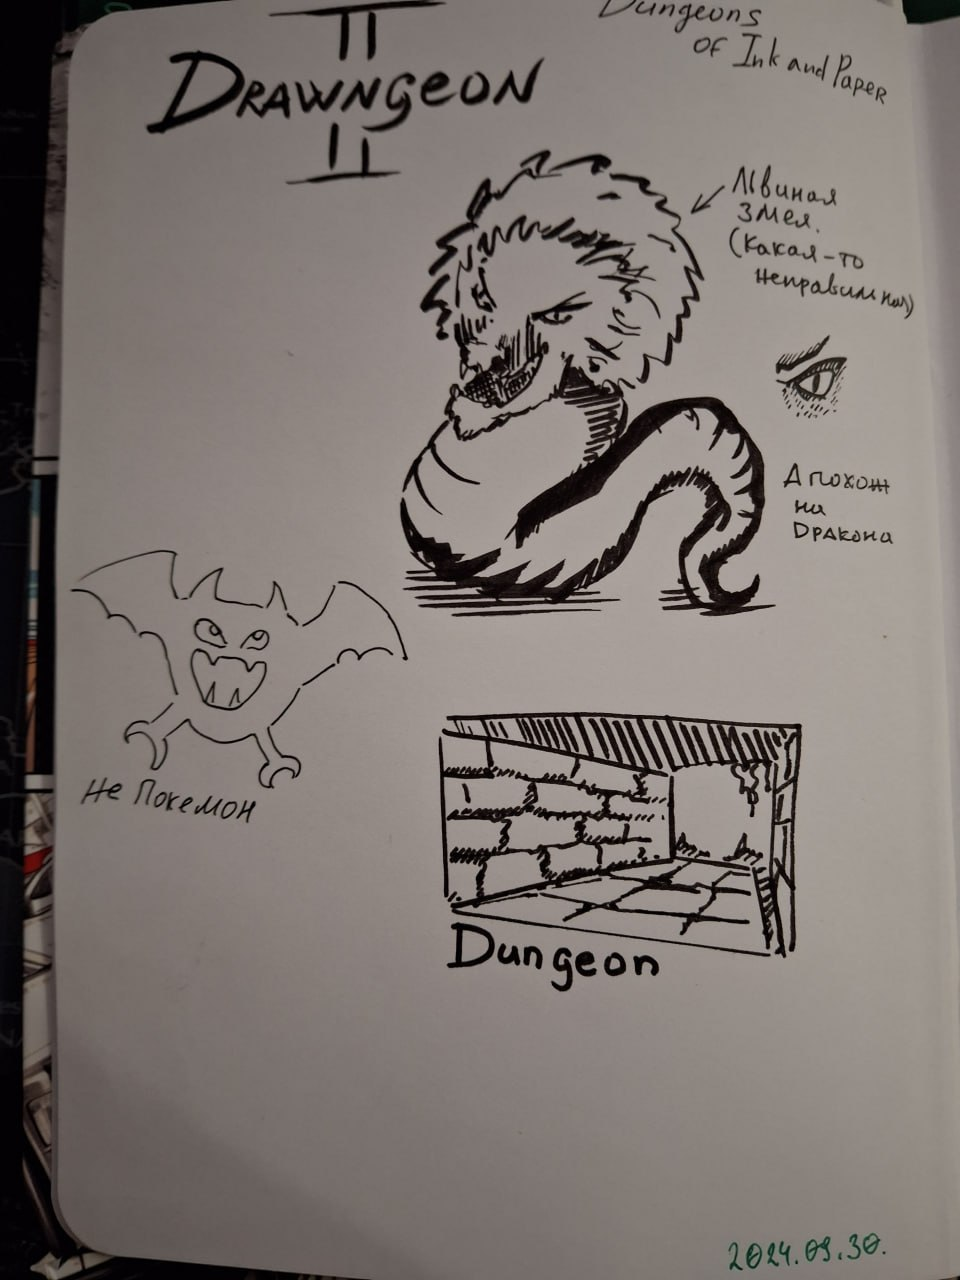 Dungeons
of Ink and Paper
DRAWNgEON
Львиная
змея.
(какая-то
неправильная)
А похож
на
Дракона
Не Покемон
Dungeon
2024.09.30.